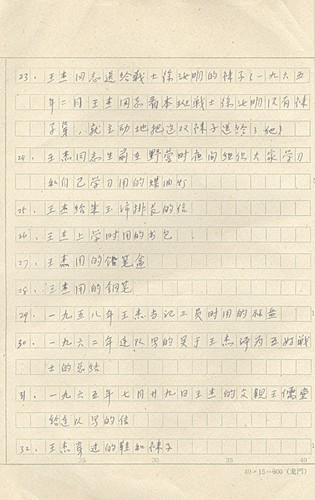 23. 王杰同志送给战士徐汝明的袜子(一九六五
年二月王杰同志看本班战士徐汝明没有袜
子穿，就主动地把这双袜子送给了他)
24. 王杰同志生前在野营时夜间组织大家学习
和自己学习用的煤油灯
25. 王杰给 排长的信
26. 王杰上学时用的书包
27. 王杰用的铅笔盒
28. 王杰用的钢笔
29. 一九五八年王杰当记工员时用的 盒
30. 一九六二年连队写的关于王杰评为五好战
士的总结
31. 一九六五年七月廿九日王杰的父亲王儒堂
给连队写的信
32. 王杰穿过的鞋和袜子
25 30 35 40
40×15=600 (龙门)